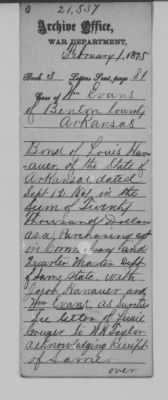 21,557
Archive Office,
WAR DEPARTMENT,
February 1, 1875
Book 3 Letters Sent, page 81
Case of Wm Evans
of Benton County
Arkansas
Bond of Louis Han-
auer of the State of
Arkansas dated
Sept 12. 1861 in the
sum of Twenty
thousand Dollars
as a Purchasing agt
in Comm'sary and
Quarter Master Dept
of Same State. with
Joseph Hanauer and
Wm Evans as Sureties
See letter of
to W.H. Taylor
acknowledging Receipt
of Same.
over